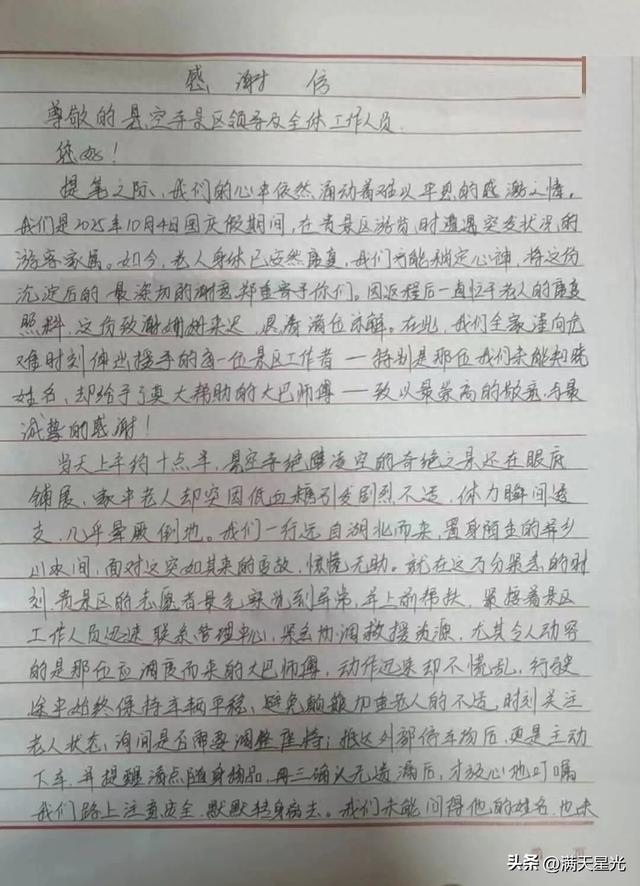 感谢信
尊敬的悬空寺景区领导及全体工作人员
您好！
提笔之际，我们的心中依然涌动着难以平息的感激之情。
我们是2025年10月4日国庆假期间，在贵景区游览时遭遇突发状况的
游客家属。如今，老人身体已安然康复，我们方能稍定心神，将这份
沉淀后的最深切的谢意郑重寄予你们。因返程后一直忙于老人的康复
照料，这份致谢姗姗来迟，恳请诸位谅解。在此，我们全家谨向危
难时刻伸出援手的每一位景区工作者——特别是那位我们未能知晓
姓名，却给予了莫大帮助的大巴师傅——致以最崇高的敬意与最
诚挚的感谢！
当天上午约十点半，悬空寺绝壁凌空的奇绝之景还在眼底
铺展，家中老人却突因低血糖引发剧烈不适，体力瞬间透
支，几乎晕厥倒地。我们一行远自湖北而来，置身陌生的异乡
山水间，面对这突如其来的变故，惊慌无助。就在这万分紧急的时
刻，贵景区的志愿者最先察觉到异常，并上前帮扶，紧接着景区
工作人员迅速联系管理中心，紧急协调救援资源，尤其令人动容
的是那位应调度而来的大巴师傅，动作迅速却不慌乱，行驶
途中始终保持车辆平稳，避免颠簸加重老人的不适，时刻关注
老人状态，询问是否需要调整座椅；抵达外部停车场后，更是主动
下车，并提醒清点随身物品，再三确认无遗漏后，才放心地叮嘱
我们路上注意安全，默默转身离去。我们未能问得他的姓名，也未
第 页
头条 @满天星光